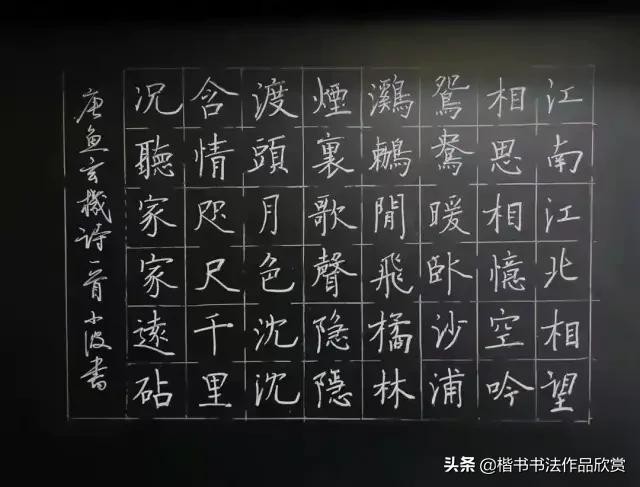 江南江北相望
相思相憶空吟
鴛鴦暖臥沙浦
鸂鶒閒飛橘林
煙裏歌聲隐隱
渡頭月色沈沈
含情咫尺千里
況聽家家遠砧
唐魚玄機詩一首小波書
头条 @楷书书法作品欣赏